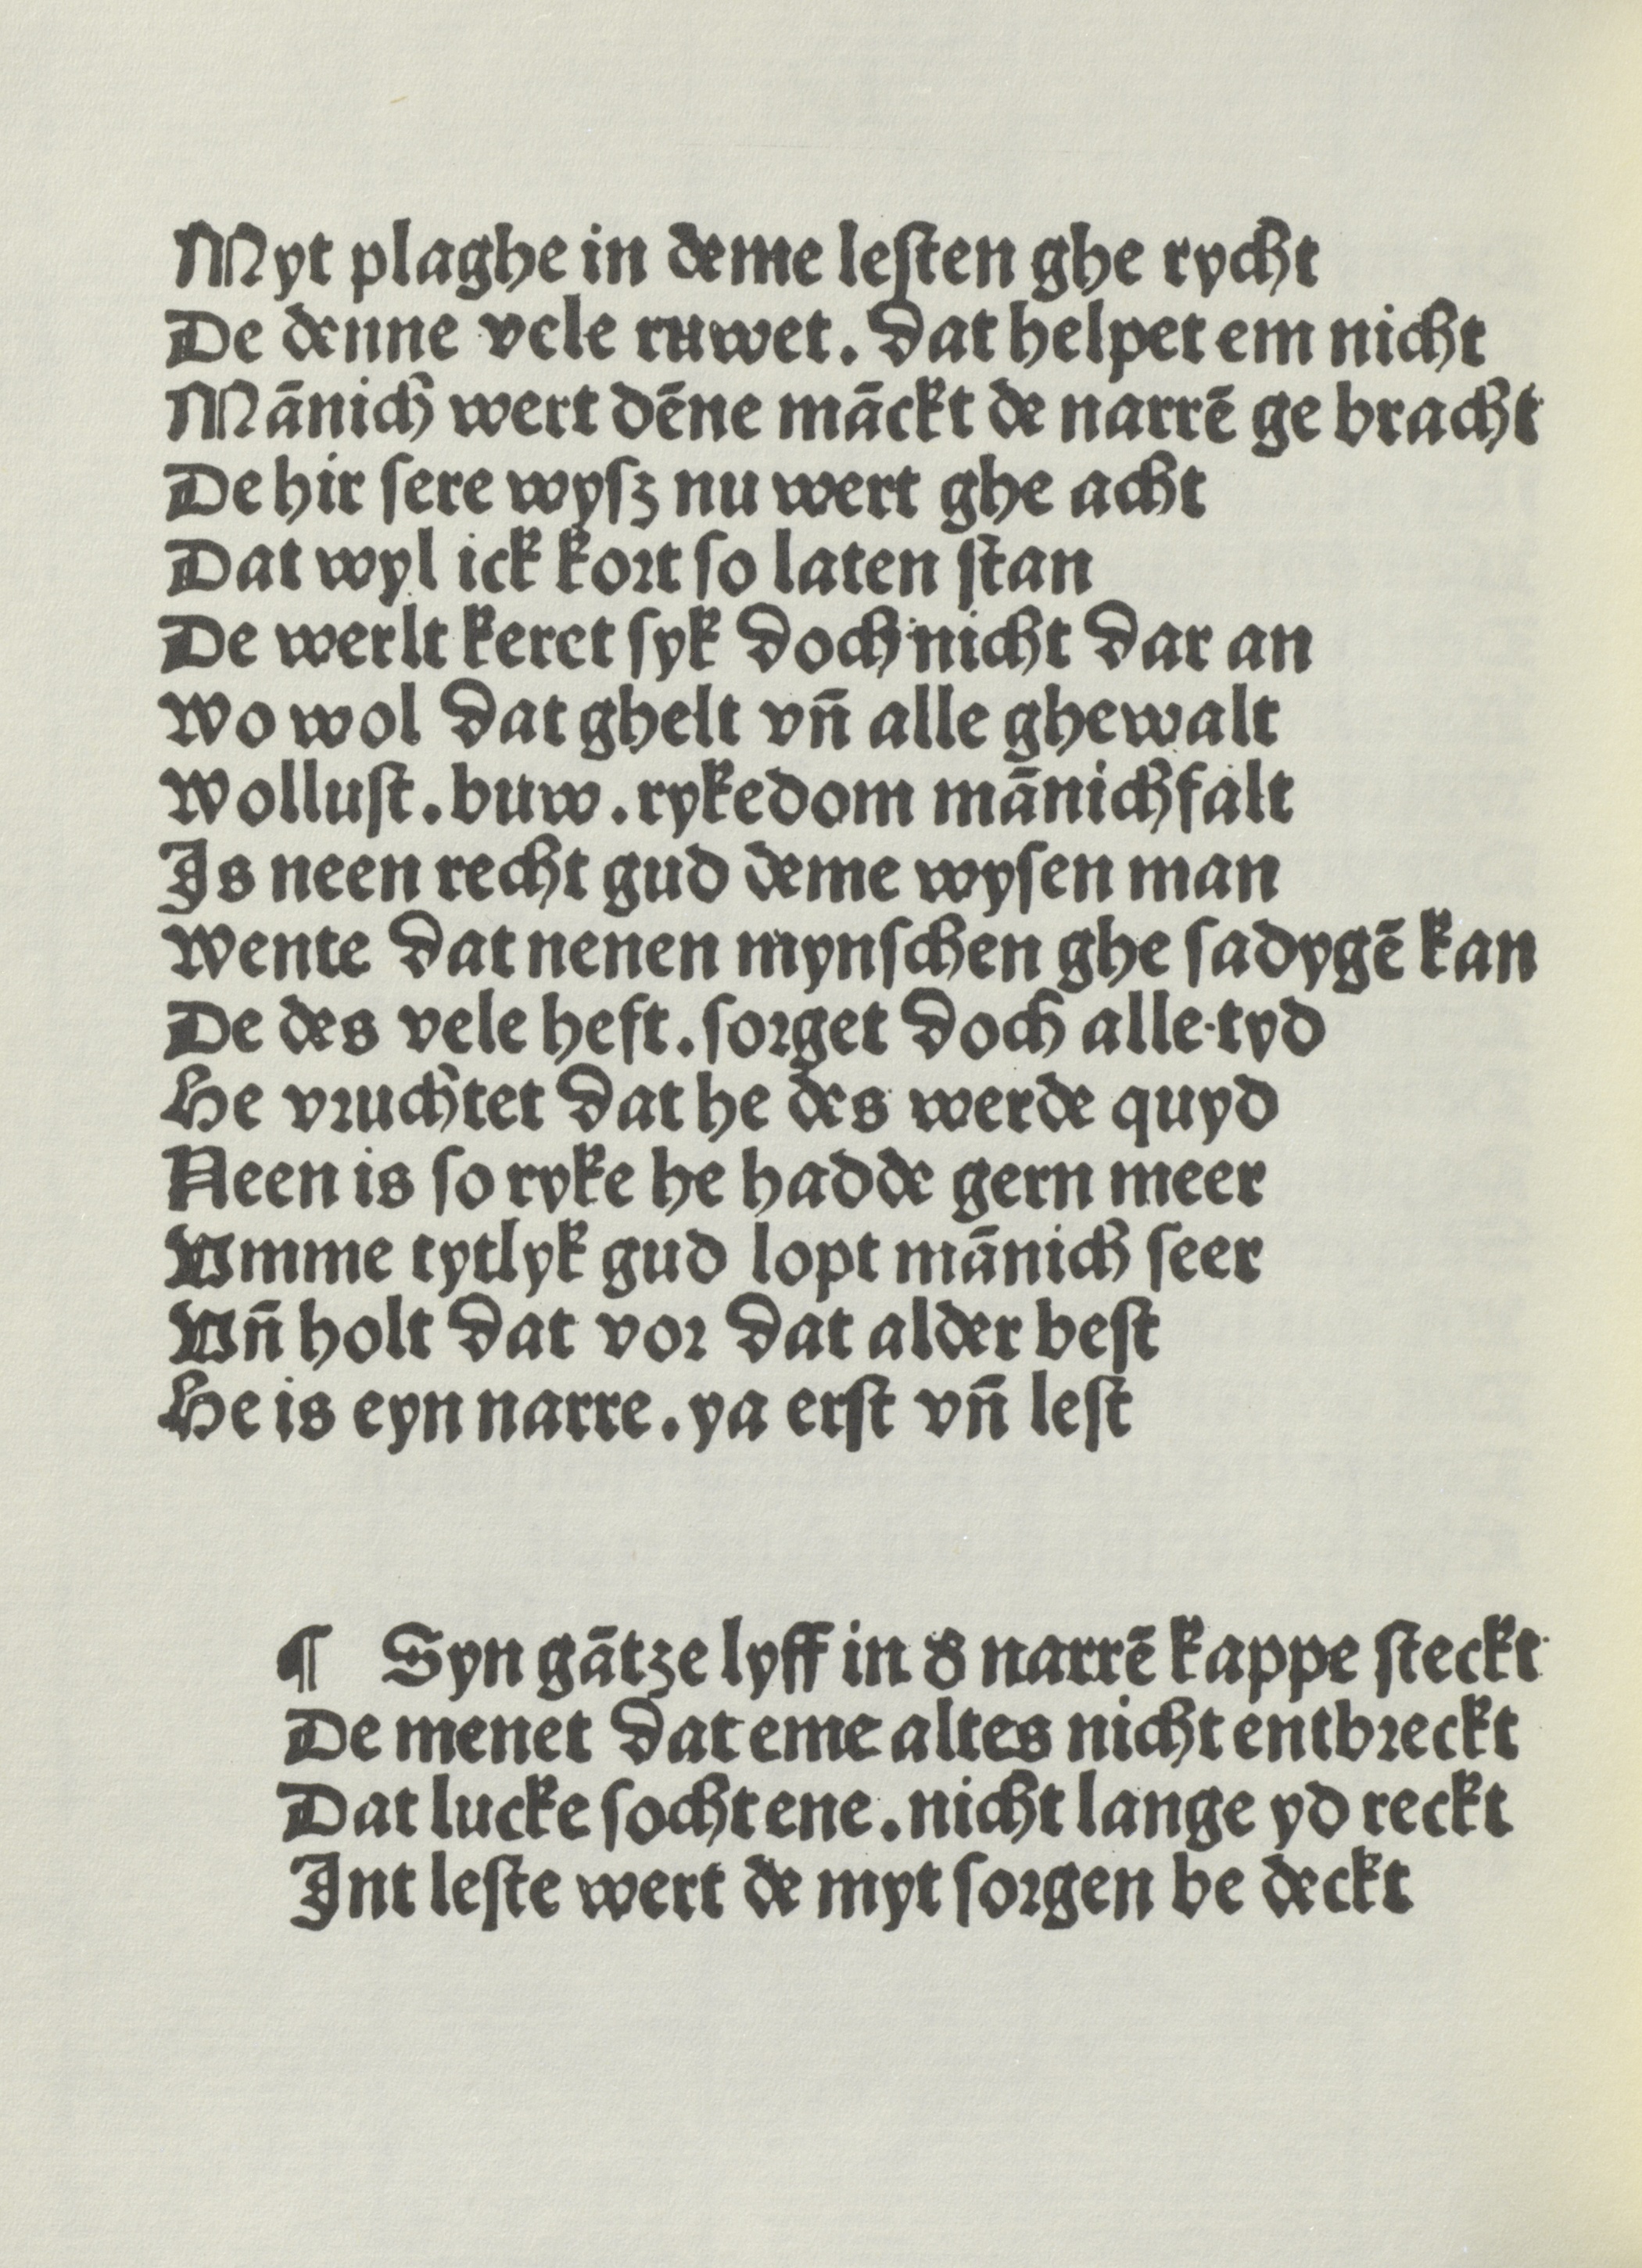 Myt plaghe in deme leſten ghe rycht
De denne vele ruwet. dat helpet em nicht
Mānich wert dēne māckt de narrē ge bracht
De hir ſere wyſz nu wert ghe acht
Dat wyl ick kort ſo laten ſtan
De werlt keret ſyk doch nicht dar an
Wo wol dat ghelt vn̄ alle ghewalt
Wolluſt. buw. rykedom mānichfalt
Is neen recht gud deme wyſen man
Wente dat nenen mynſchen ghe ſadygē kan
De des vele heft. ſorget doch alle tyd
He vruchtet dat he des werde quyd
Neen is ſo ryke he hadde gern meer
Vmme tytlyk gud lopt mānich ſeer
Vn̄ holt dat vor dat alder beſt
He is eyn narre. ya erſt vn̄ leſt
¶ Syn gātze lyff in d' narrē kappe ſteckt
De menet dat eme altes nicht entbreckt
Dat lucke ſocht ene. nicht lange yd reckt
Int leſte wert de myt ſorgen be deckt